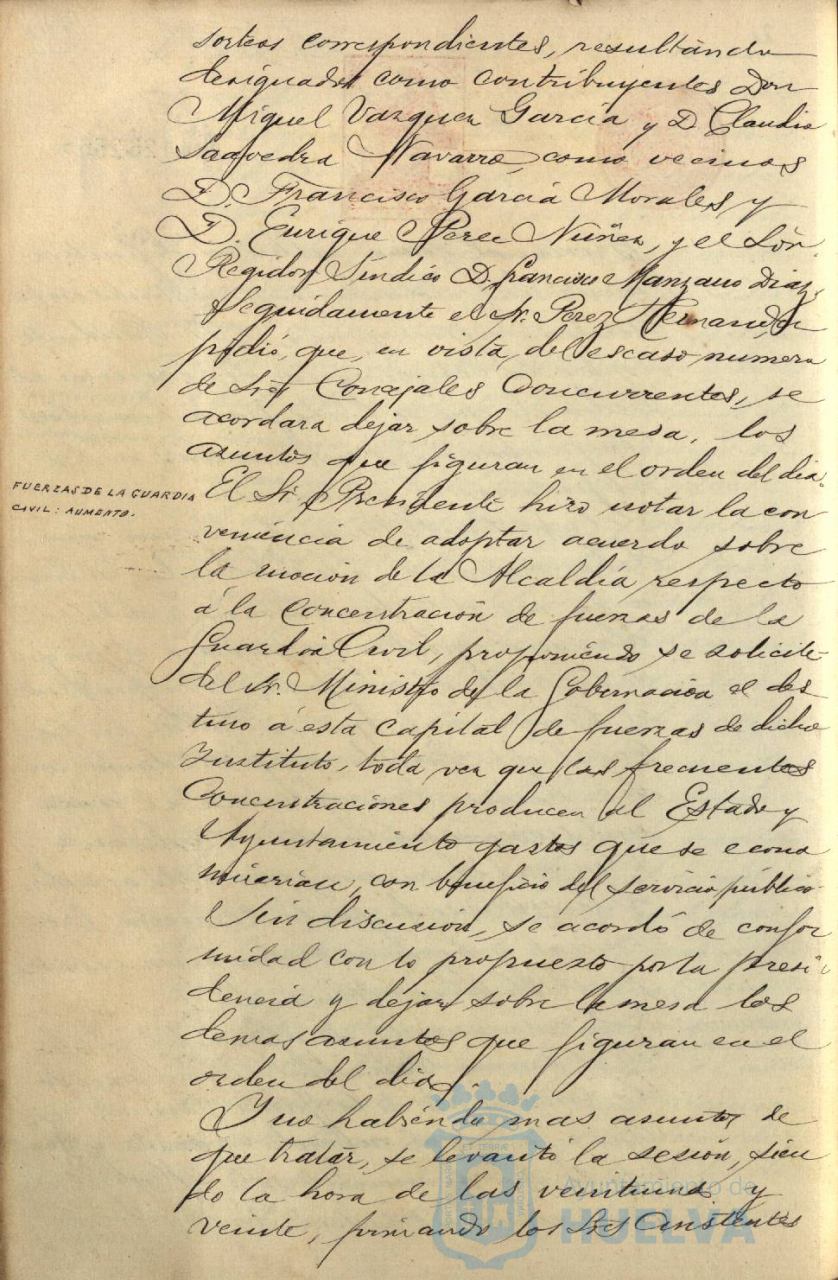 sorteos correspondientes, resultando
designados como contribuyentes Don
Miguel Vazquez García y D Claudio
Saavedra Navarro, como vecinos
D. Francisco García Morales, y
D. Enrique Perez Nuñez, y el Sõr.
Regidor Síndico D. Francisco Manzano Diaz.
Seguidamente el Sr. Perez Hernandez
pidió, que, en vista, del escaso numero
de Sres Concejales concurrentes, se
acordara dejar sobre la mesa, los
asuntos que figuran en el orden del dia.
FUERZAS DE LA GUARDIA
CIVIL: AUMENTO.
El Sr. Presidente hizo notar la con
veniencia de adoptar acuerdo sobre
la mocion de la Alcaldía respecto
á la concentración de fuerzas de la
Guardia Civil, proponiendo se solicite
del Sr. Ministro de la Gobernacion el des
tino á esta capital de fuerzas de dicho
Instituto, toda vez que las frecuentes
Concentraciones producen al Estado y
Ayuntamiento gastos que se econo
mizarian, con beneficio del servicio público.
Sin discusion, se acordó de confor
midad con lo propuesto por la presi
dencia y dejar sobre la mesa los
demas asuntos que figuran en el
orden del dia.
Y no habiendo mas asuntos de
que tratar, se levantó la sesión, sien
do la hora de las veintiuna y
veinte, firmando los Sres Asistentes
Ayuntamiento de
HUELVA